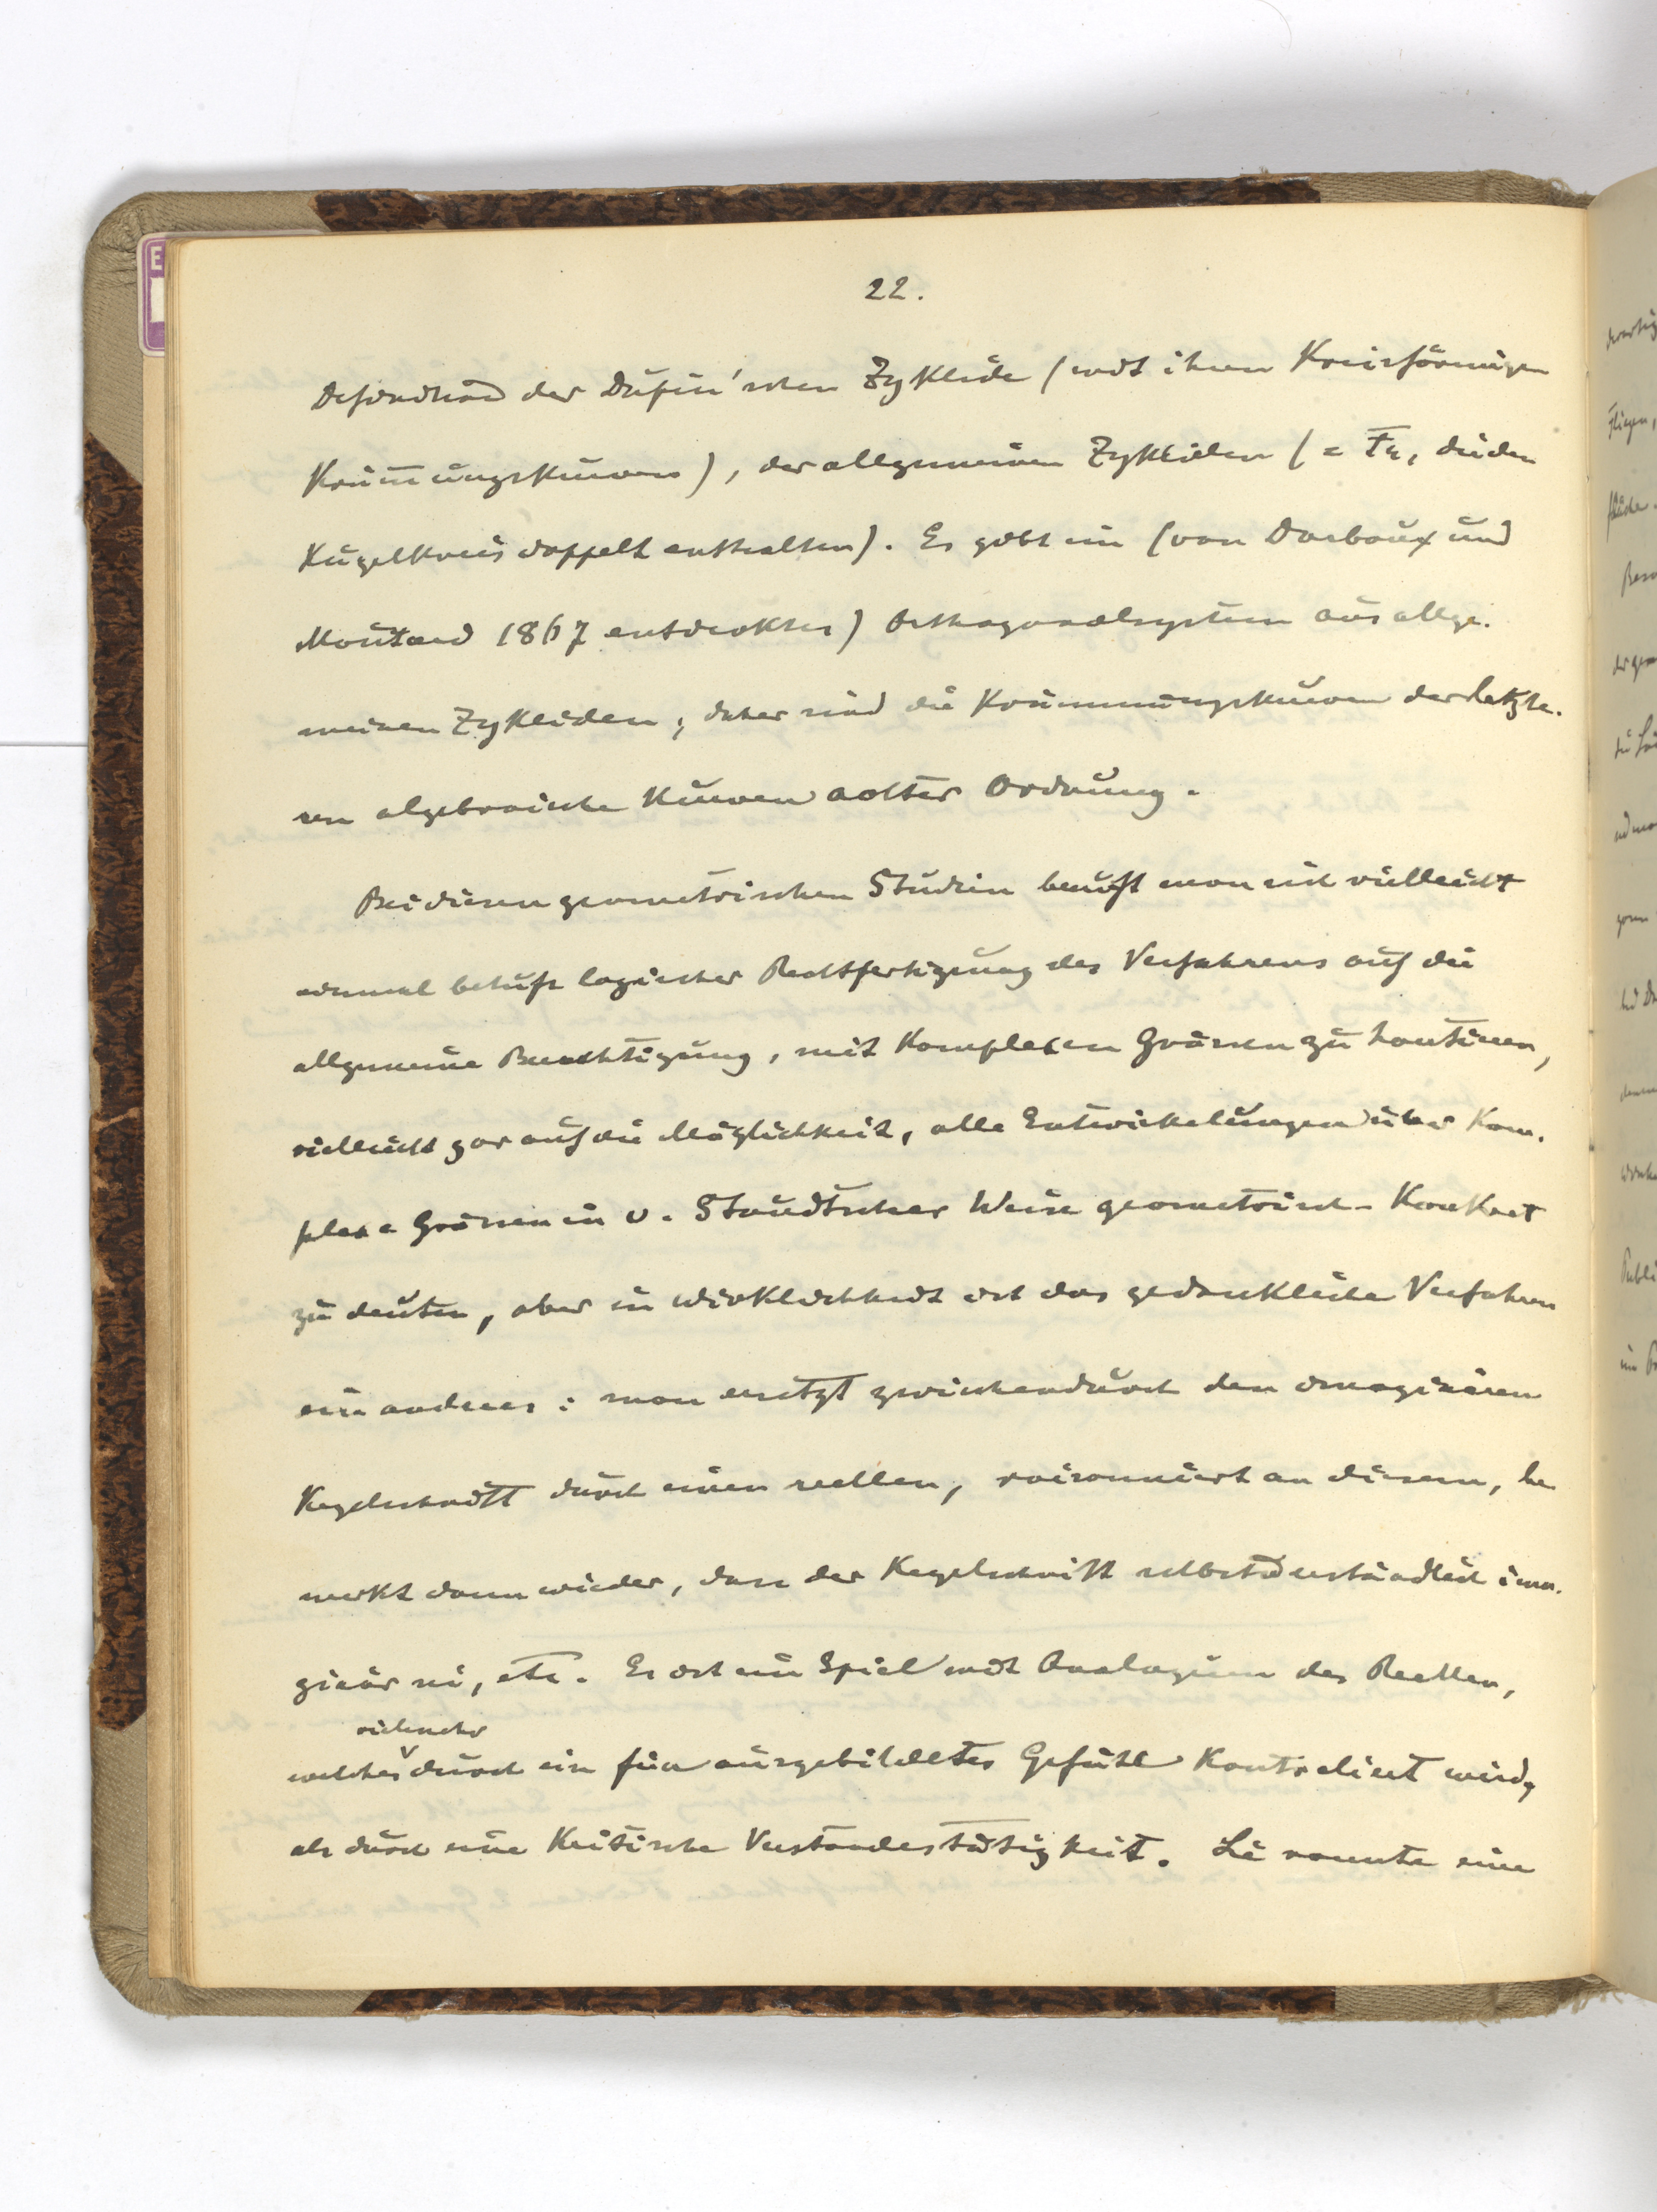 22.
Definition der Dupin'schen Zyklide (mit ihren Kreisförmigen
Krümungskurven), der allgemeinen Zykliden (= F4, die den
Kugelkreis doppelt enthalten). Es gibt ein (von Darboux und
Moutard 1867 entdecktes) Orthogonalsystem aus allge-
meinen Zykliden; daher sind die Krümmungskurven der letzte-
ren algebraische Kurven achter Ordnung.
Bei diesen geometrischen Studien beruft man sich vielleicht
einmal behufs logischer Rechtfertigung des Verfahrens auf die
allgemeine Berechtigung, mit komplexen Grössen zu hantieren,
vielleicht gar auf die Möglichkeit, alle Entwickelungen über kom-
plexe Grössen in v. Staudtscher Weise geometrisch-konkret
zu deuten, aber in Wirklichkeit ist das gedankliche Verfahren
ein anderes: man ersetzt zwischendurch den imaginären
Kegelschnitt durch einen reellen, raisonniert an diesem, be
merkt dann wieder, dass der Kegelschnitt selbstverständlich ima-
ginär sei, etc. Es ist ein Spiel mit Analogien des Reellen,
vielmehr
welches durch ein fein ausgebildetes Gefühl kontroliert wird,
als durch eine kritische Verstandestätigkeit. Lie nannte eine